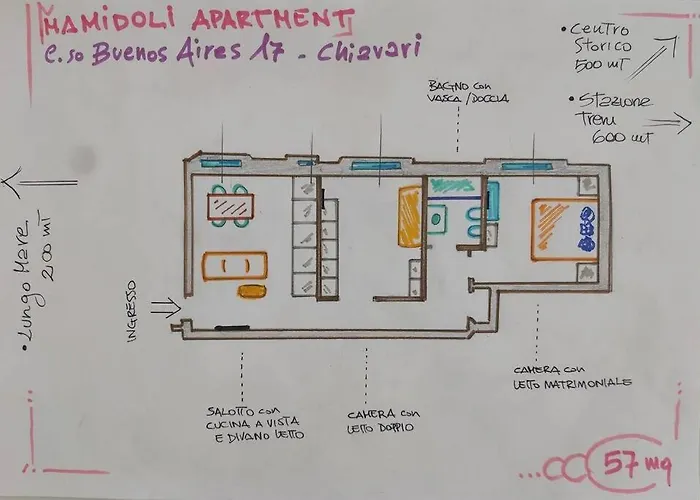 MAMIDOLI APARTMENT
C.so Buenos Aires 17 - Chiavari
• CENTRO
STORICO
500 MT
• STAZIONE
TRENI
600 MT
BAGNO con
VASCA/DOCCIA
• LUNGO MARE
200 MT
INGRESSO
SALOTTO con
CUCINA A VISTA
E DIVANO LETTO
CAMERA con
LETTO DOPPIO
CAMERA con
LETTO MATRIMONIALE
57 mq